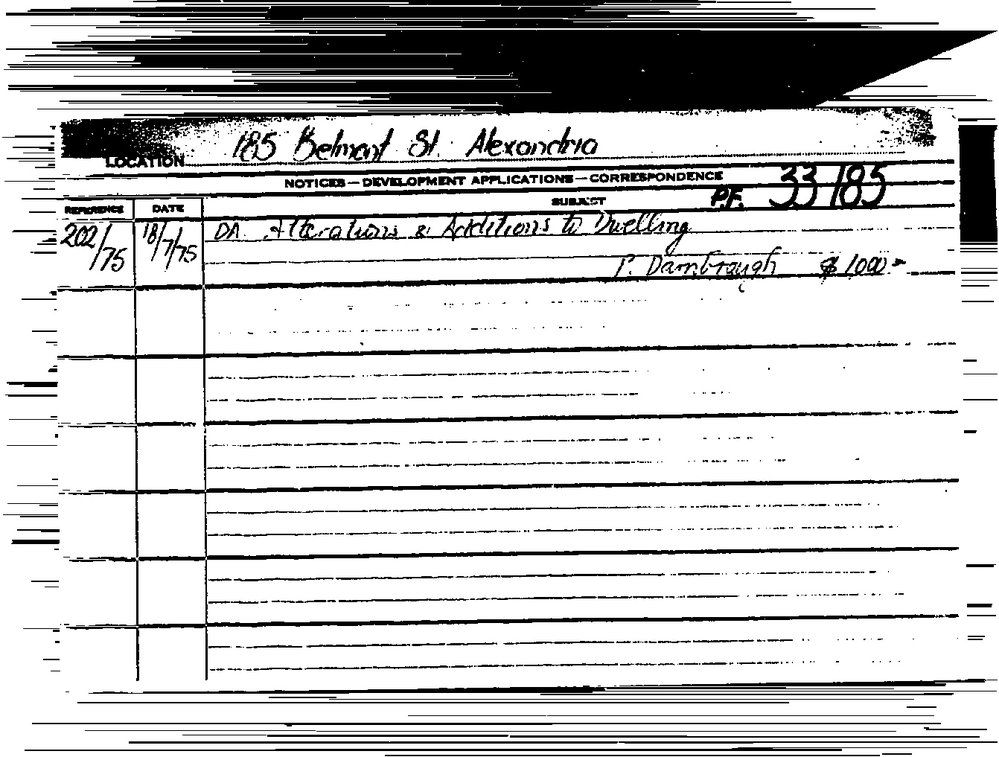 LOCATION 185 Belmont St. Alexandria
NOTICES — DEVELOPMENT APPLICATIONS — CORRESPONDENCE
REFERENCE DATE SUBJECT P.F. 33 185
202/75 18/7/75 DA. Alterations & Additions to Dwelling
P. $1000 -